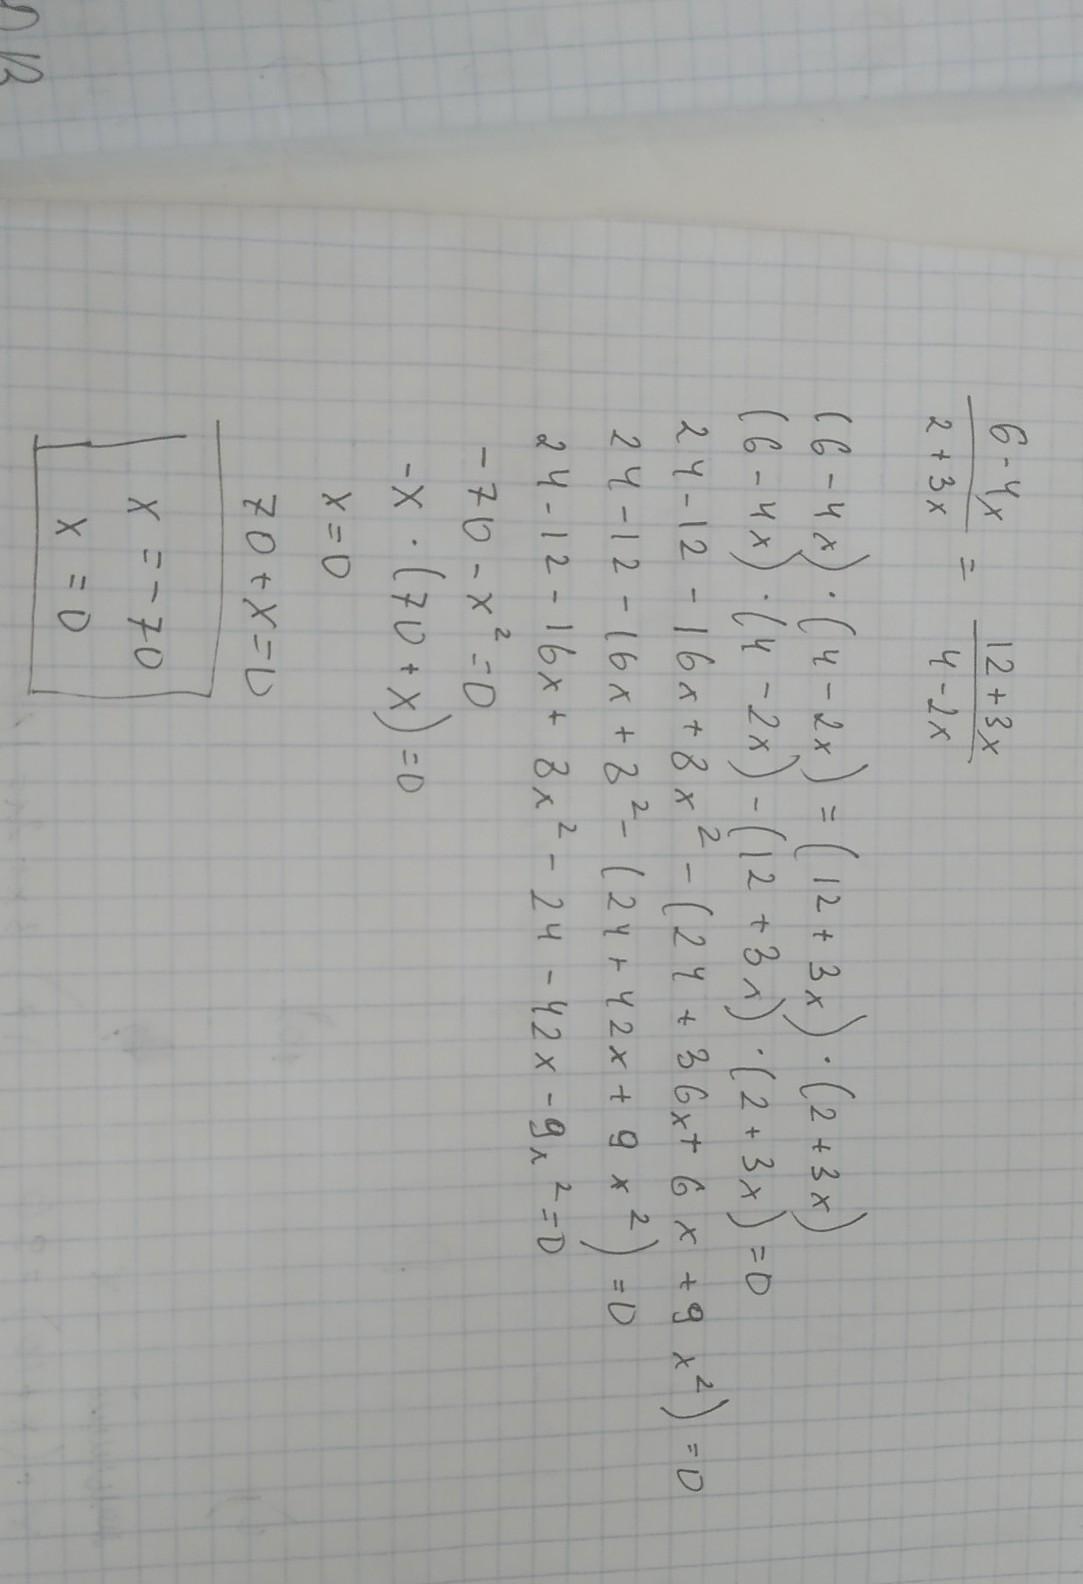 6-4x / 2+3x = 12+3x / 4-2x
(6-4x)·(4-2x)=(12+3x)·(2+3x)
(6-4x)·(4-2x)-(12+3x)·(2+3x)=0
24-12-16x+8x²-(24+36x+6x+9x²)=0
24-12-16x+8²-(24+42x+9x²)=0
24-12-16x+8x²-24-42x-9x²=0
-70-x²=0
-x·(70+x)=0
x=0
70+x=0
x=-70
x=0